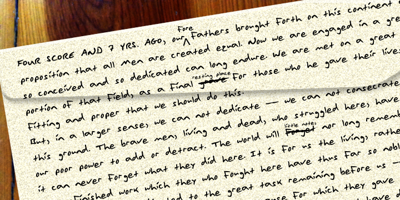 FOUR SCORE AND 7 YRS. AGO, our Fore Fathers brought forth on this continent a
proposition that all men are created equal. Now we are engaged in a grea
so conceived and so dedicated can long endure. We are met on a great
portion of that field, as a final resting place for those who he gave their lives
Fitting and proper that we should do this.
But, in a larger sense, we can not dedicate — we can not consecrate
this ground. The brave men, living and dead, who struggled here, have
our poor power to add or detract. The world will little note, nor long remember
it can never forget what they did here. It is for us the living, rather
finished work which they who fought here have thus far so nobl
to the great task remaining before us —
for which they gave
have d